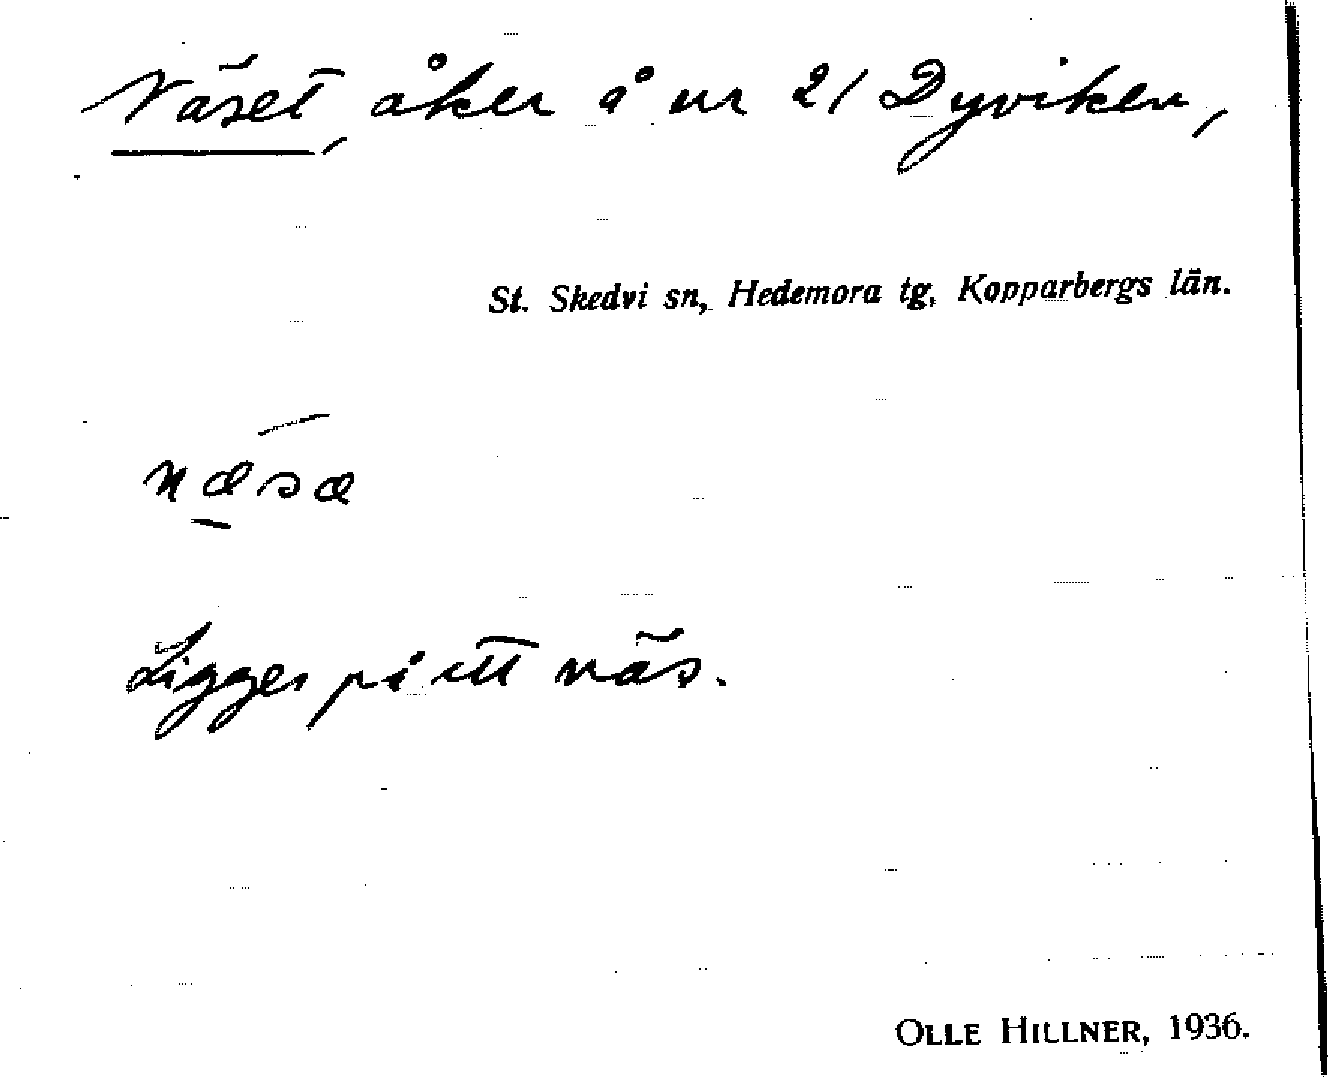 Näset, åker å nr 21 Dyviken,
St. Skedvi sn, Hedemora tg, Kopparbergs län.
næsæ
Ligger på ett näs.
OLLE HILLNER, 1936.